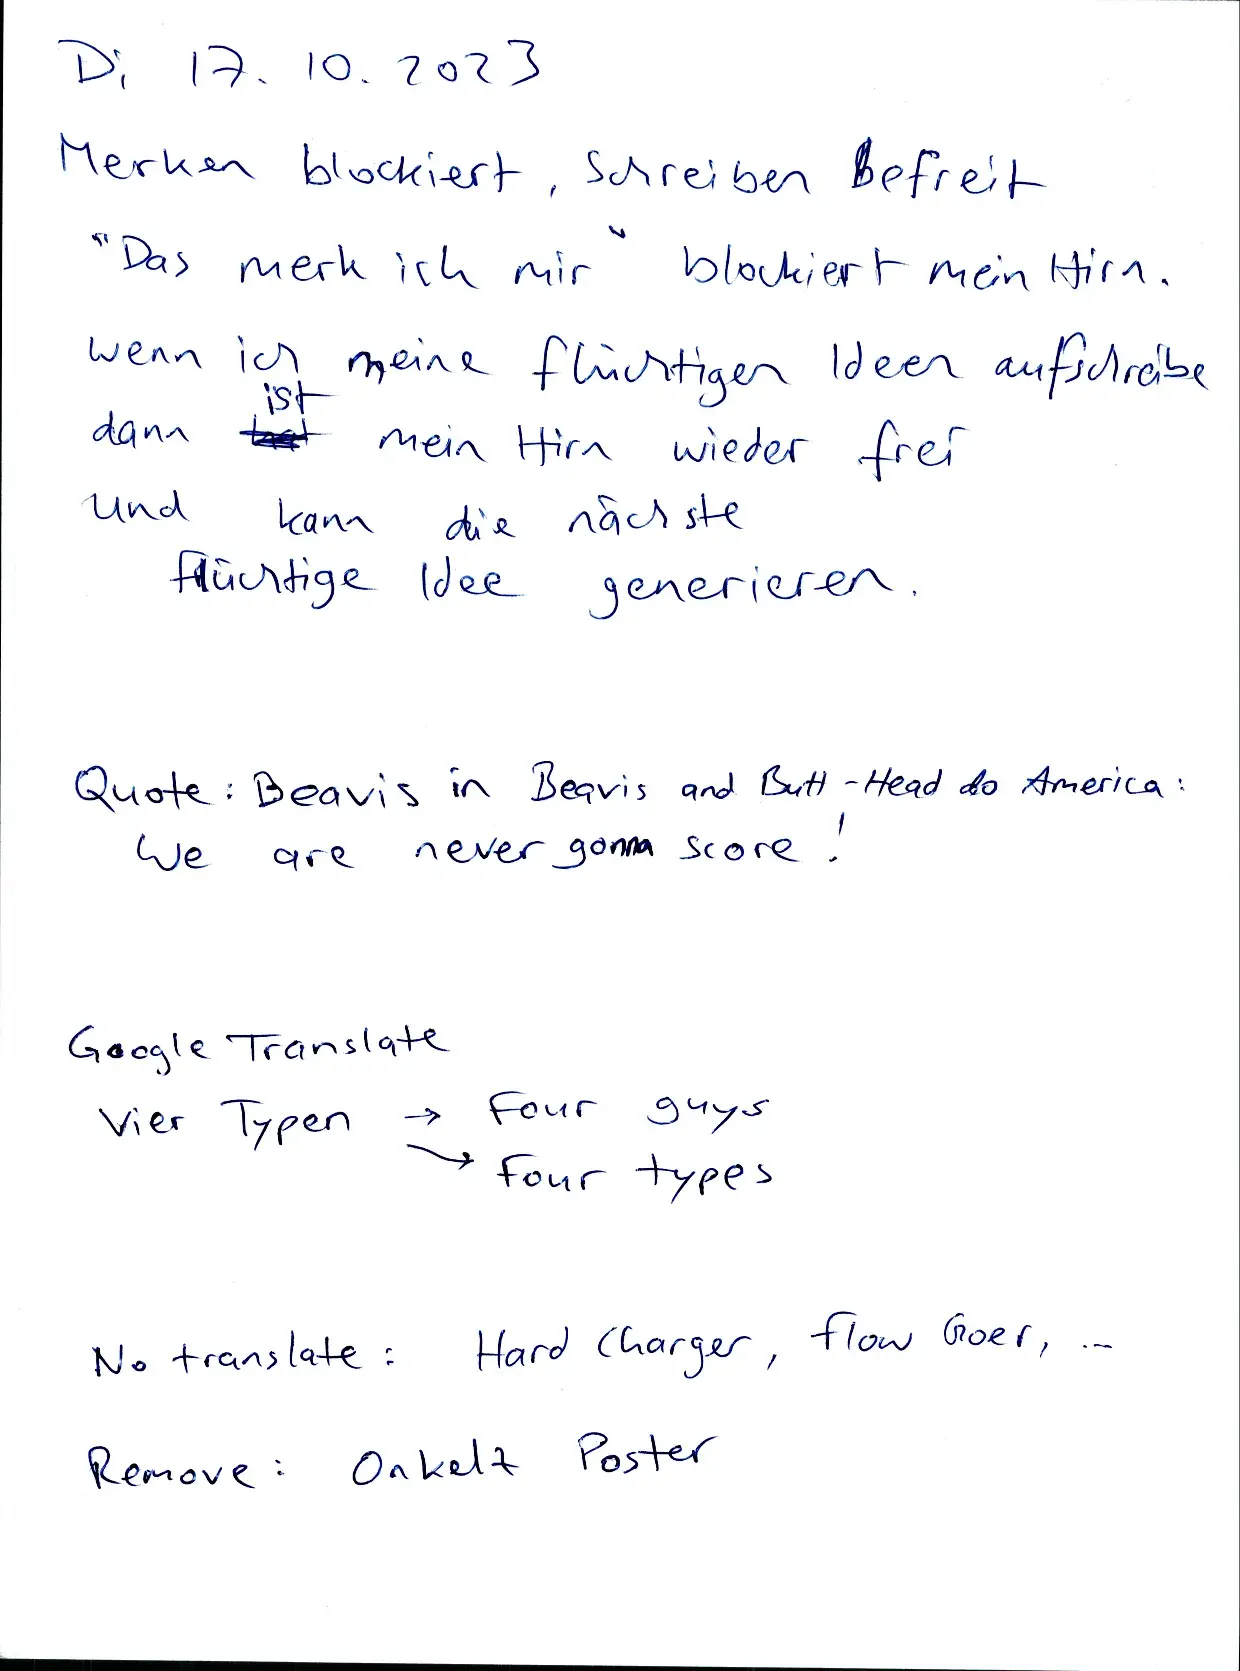 Di 17.10.2023
Merken blockiert, schreiben Befreit
"Das merk ich mir" blockiert mein Hirn.
wenn ich meine flüchtigen Ideen aufschreibe
dann ist mein Hirn wieder frei
und kann die nächste
flüchtige Idee generieren.
Quote: Beavis in Beavis and Butt-Head do America:
We are never gonna score!
Google Translate
Vier Typen → Four guys
→ Four types
No translate: Hard Charger, Flow Goer, ...
Remove: Onkelz Poster